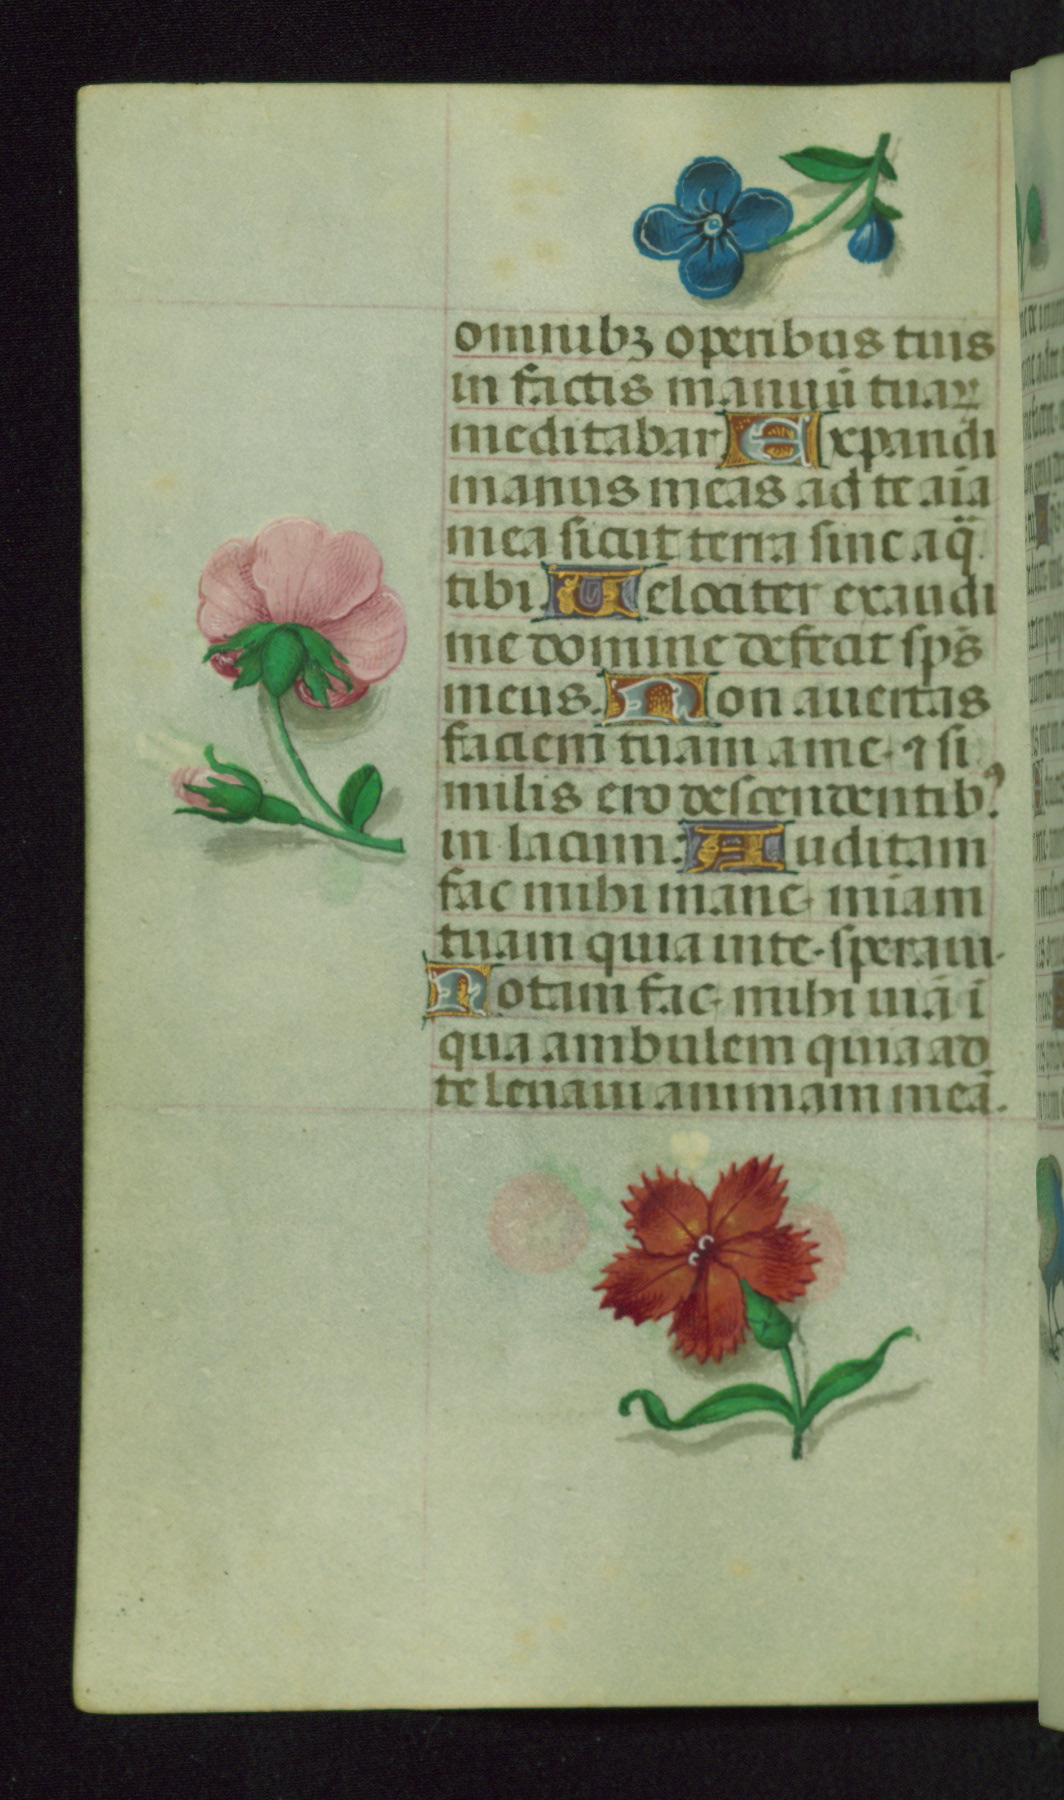 omnibꝫ operibus tuis
in factis manuū tuaꝝ
meditabar Expandi
manus meas ad te aīa
mea sicut terra sine aq̄
tibi. Velociter exaudi
me domine defecit sp̄s
meus. Non auertas
faciem tuam a me ⁊ si
milis ero descendentibꝰ
in lacum. Auditam
fac mihi mane miam
tuam quia in te speraui.
Notam fac mihi uiā ī
qua ambulem quia ad
te leuaui animam meā.